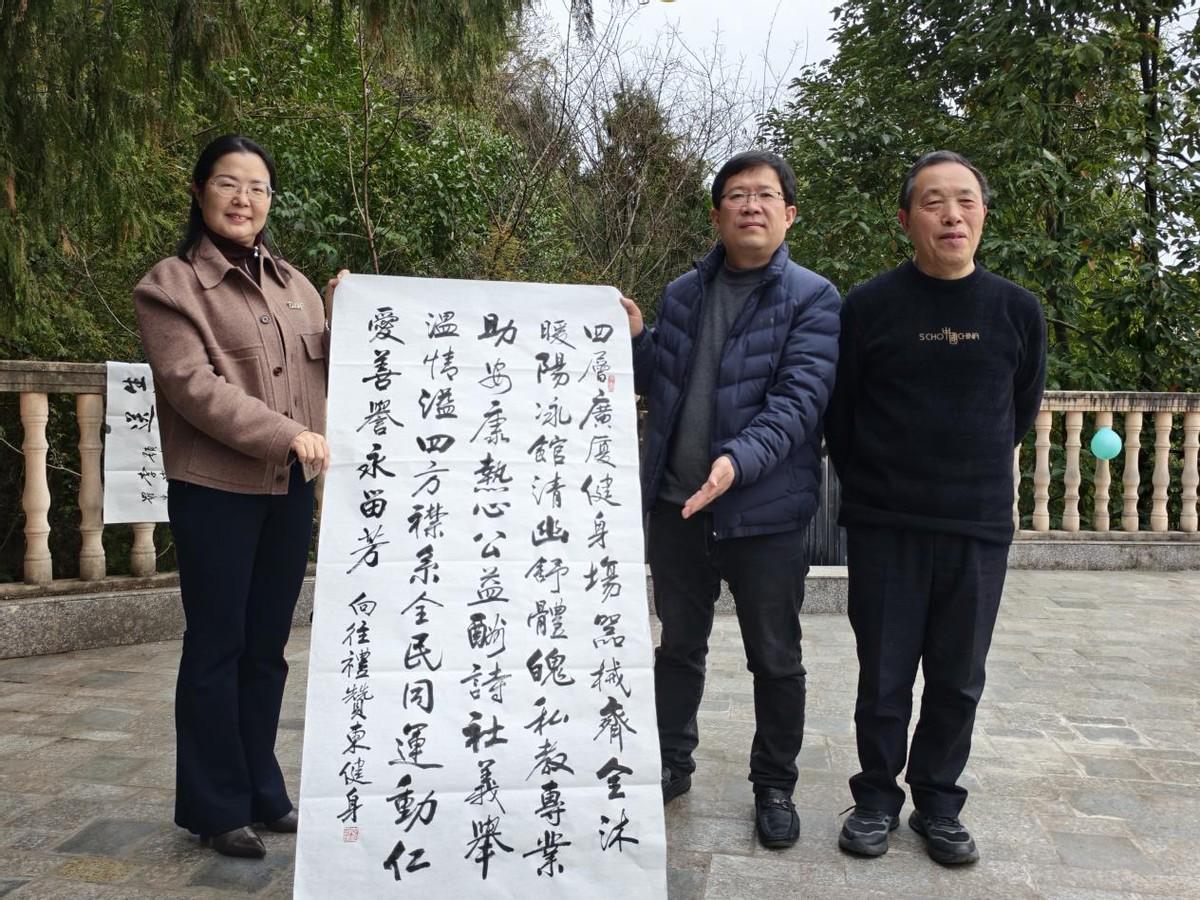 四層廣廈健身場器械齊全沐
暖陽泳館清幽舒體魄私教專業
助安康熱心公益酬詩社義舉
溫情溢四方襟系全民同運動仁
愛善譽永留芳
向往禮贊東健身
SCHO CHINA